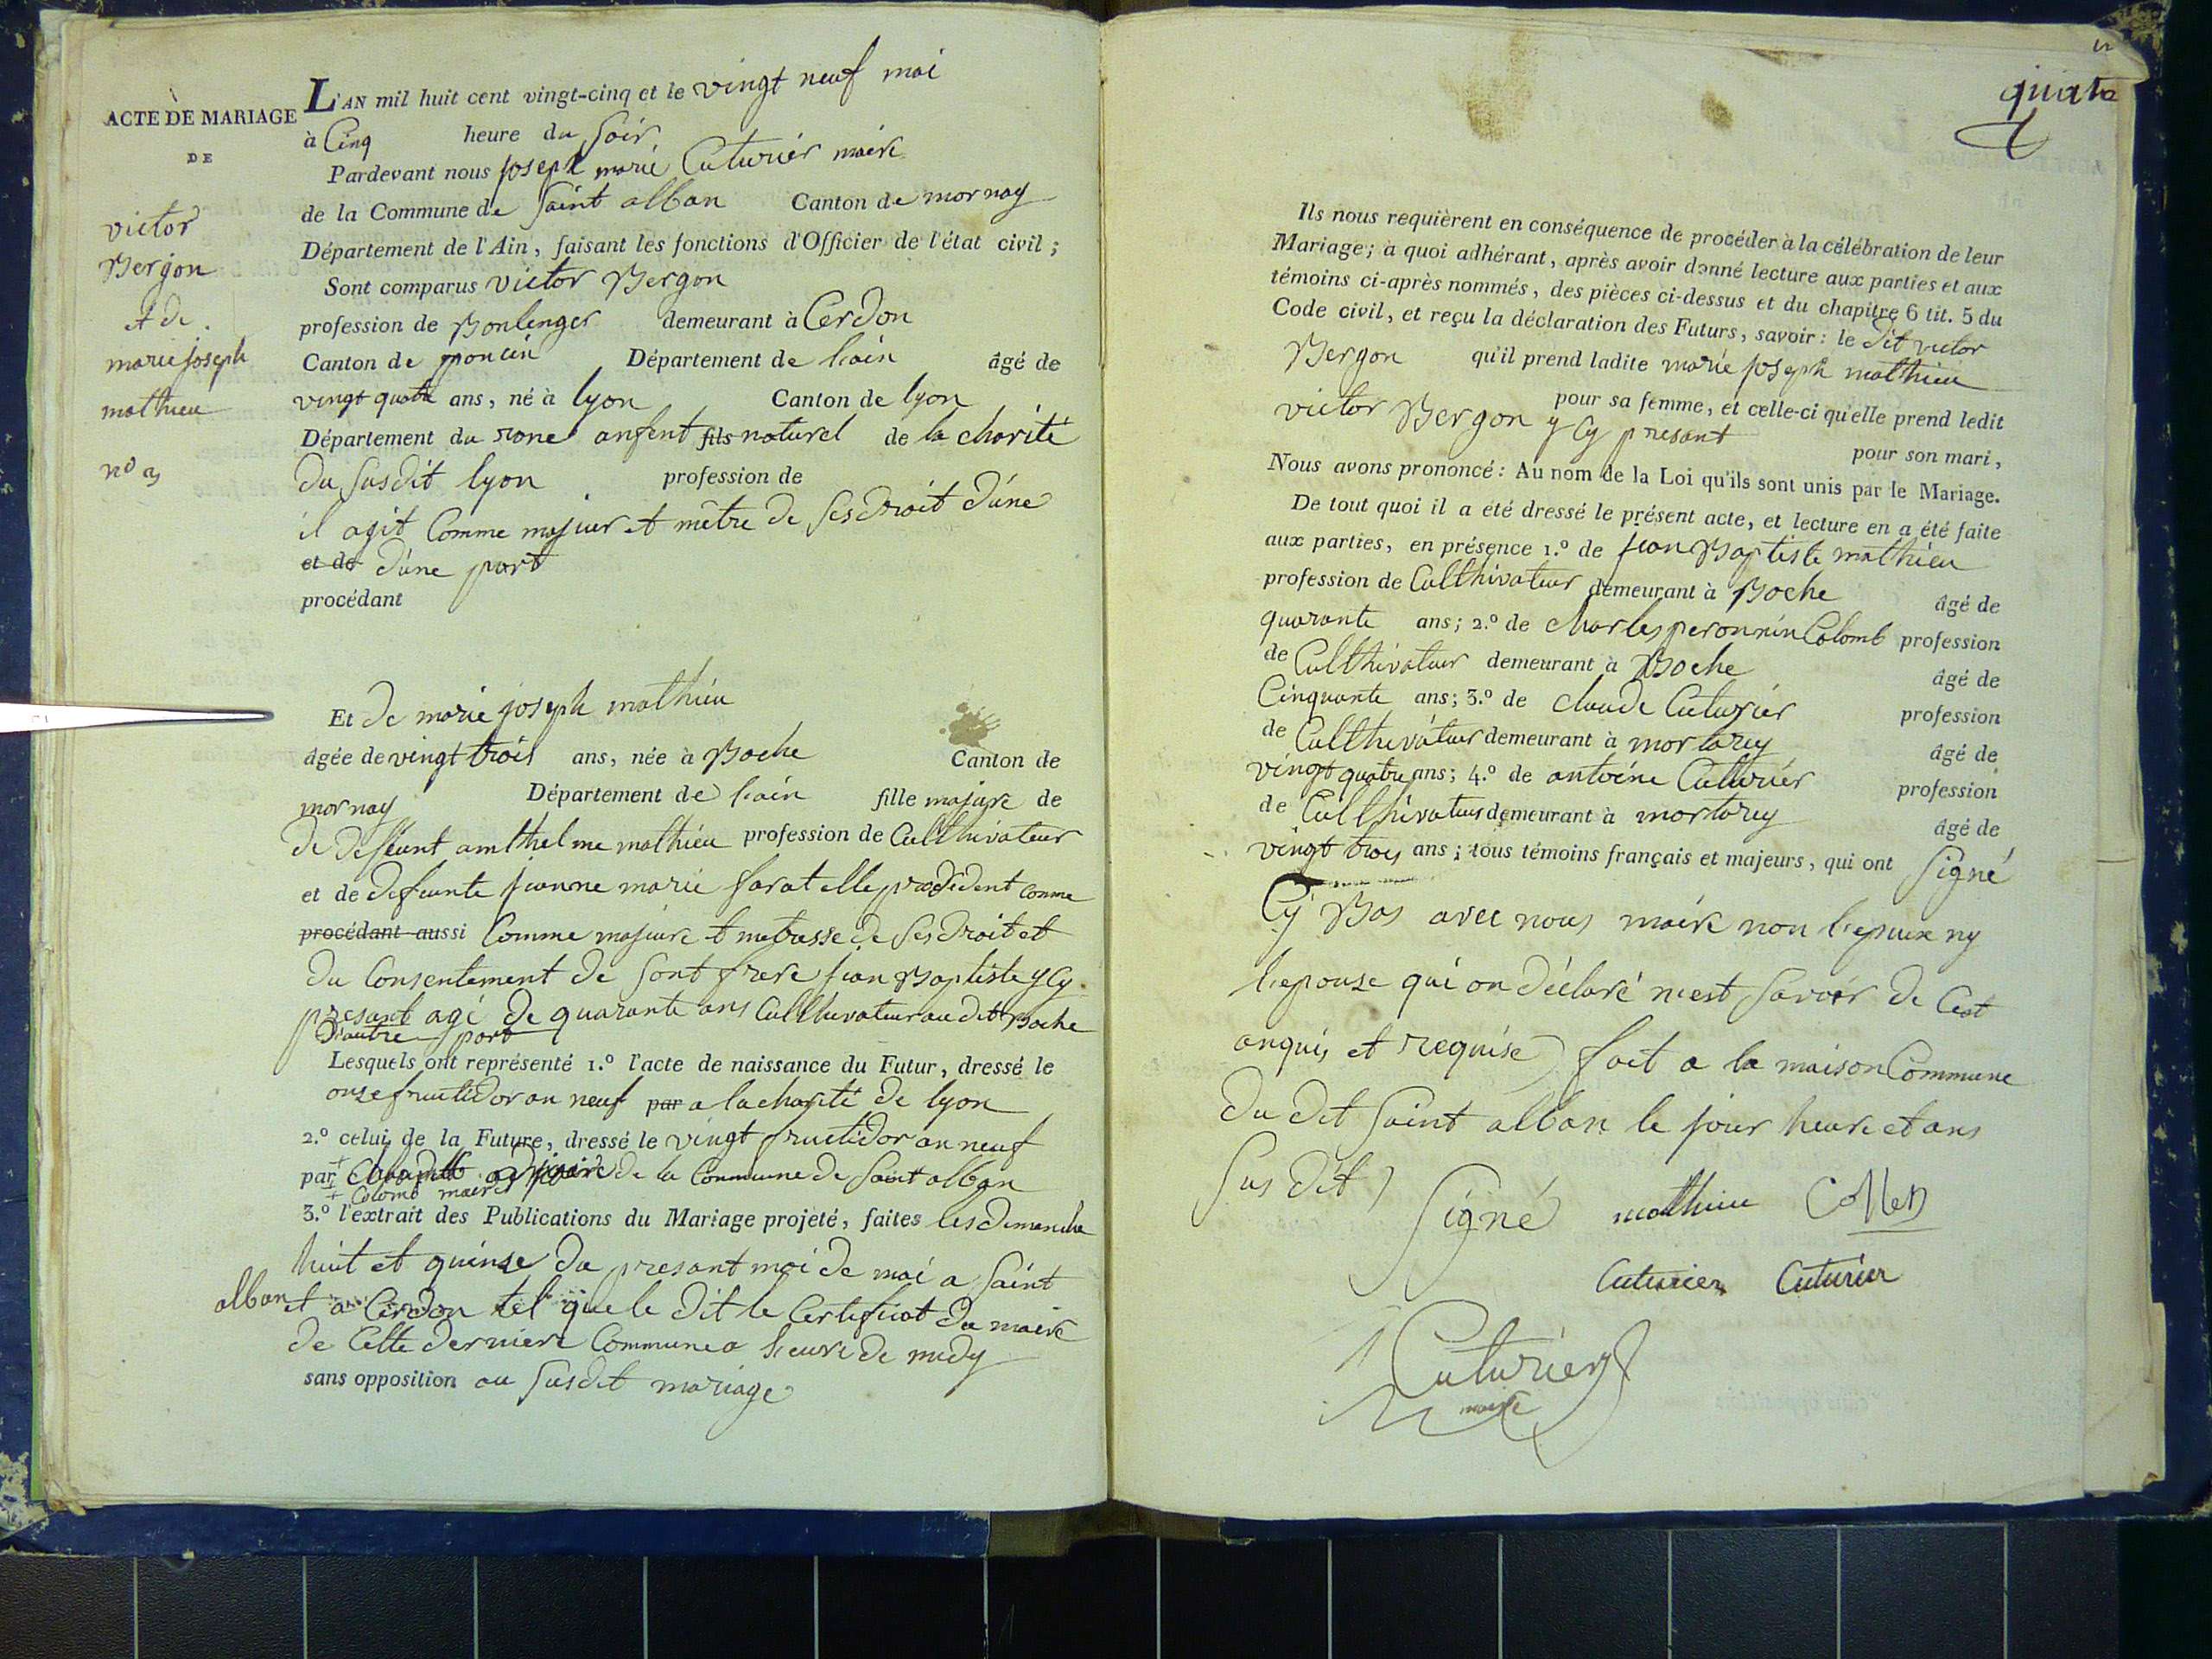 ACTE DE MARIAGE
DE
victor
Bergon
et de
marie joseph
mathieu
L'AN mil huit cent vingt-cinq et le vingt neuf mai
à Cinq heure du Soir
Pardevant nous joseph marie Cuturier maire
de la Commune de Saint alban Canton de mornay
Département de l'Ain, faisant les fonctions d'Officier de l'état civil;
Sont comparus victor Bergon
profession de Boulenger demeurant à Cerdon
Canton de poncin Département de l'ain âgé de
vingt quatre ans, né à lyon Canton de lyon
Département du rone anfent fils naturel de la charité
du susdit lyon profession de
il agit Comme majeur et mêtre de ses droit d'une
et de d'une part
procédant
Et de marie joseph mathieu
âgée de vingt trois ans, née à Boche Canton de
mornay Département de l'ain fille majure de
de deffeunt amthelme mathieu profession de Cullthivateur
et de defeunte jeanne marie farat elle prosedent comme
procédant aussi Comme majeure et metresse de ses droit et
du Consentement de sont frere jean Baptiste y Cy
presant agé de quarante ans Cullthivateur au dit Boche
D'autre part
Lesquels ont représenté 1.º l'acte de naissance du Futur, dressé le
onze fructidor an neuf par a la charité de lyon
2.º celui de la Future, dressé le vingt fructidor an neuf
par + de la Commune de Saint alban
+ Colomb maire
3.º l'extrait des Publications du Mariage projeté, faites les dimanche
huit et quinze du presant moi de mai a Saint
alban et a Cerdon tel que le dit le Certificat du maire
de Cette derniere Commune a l'heure de midy
sans opposition au susdit mariage
quatre
Ils nous requièrent en conséquence de procéder à la célébration de leur
Mariage; à quoi adhérant, après avoir donné lecture aux parties et aux
témoins ci-après nommés, des pièces ci-dessus et du chapitre 6 tit. 5 du
Code civil, et reçu la déclaration des Futurs, savoir: le dit victor
Bergon qu'il prend ladite marie joseph mathieu
pour sa femme, et celle-ci qu'elle prend ledit
victor Bergon y Cy presant pour son mari,
Nous avons prononcé: Au nom de la Loi qu'ils sont unis par le Mariage.
De tout quoi il a été dressé le présent acte, et lecture en a été faite
aux parties, en présence 1.º de jean Baptiste mathieu
profession de Cullthivateur demeurant à Boche âgé de
quarante ans; 2.º de charles peronnin Colomb profession
de Cullthivateur demeurant à Boche âgé de
Cinquante ans; 3.º de claude Cuturier profession
de Cullthivateur demeurant à mortarey âgé de
vingt quatre ans; 4.º de antoine Cuturier profession
de Cullthivateur demeurant à mortarey âgé de
vingt trois ans; tous témoins français et majeurs, qui ont Signé
Cy Bas avec nous maire non l'epoux ny
l'epouse qui on déclaré n'est savoir de Cest
anquis et requise fait a la maison Commune
du dit Saint alban le jour heure et ans
Susdit
Signé mathieu
Cuturier Cuturier
Cuturier
maire